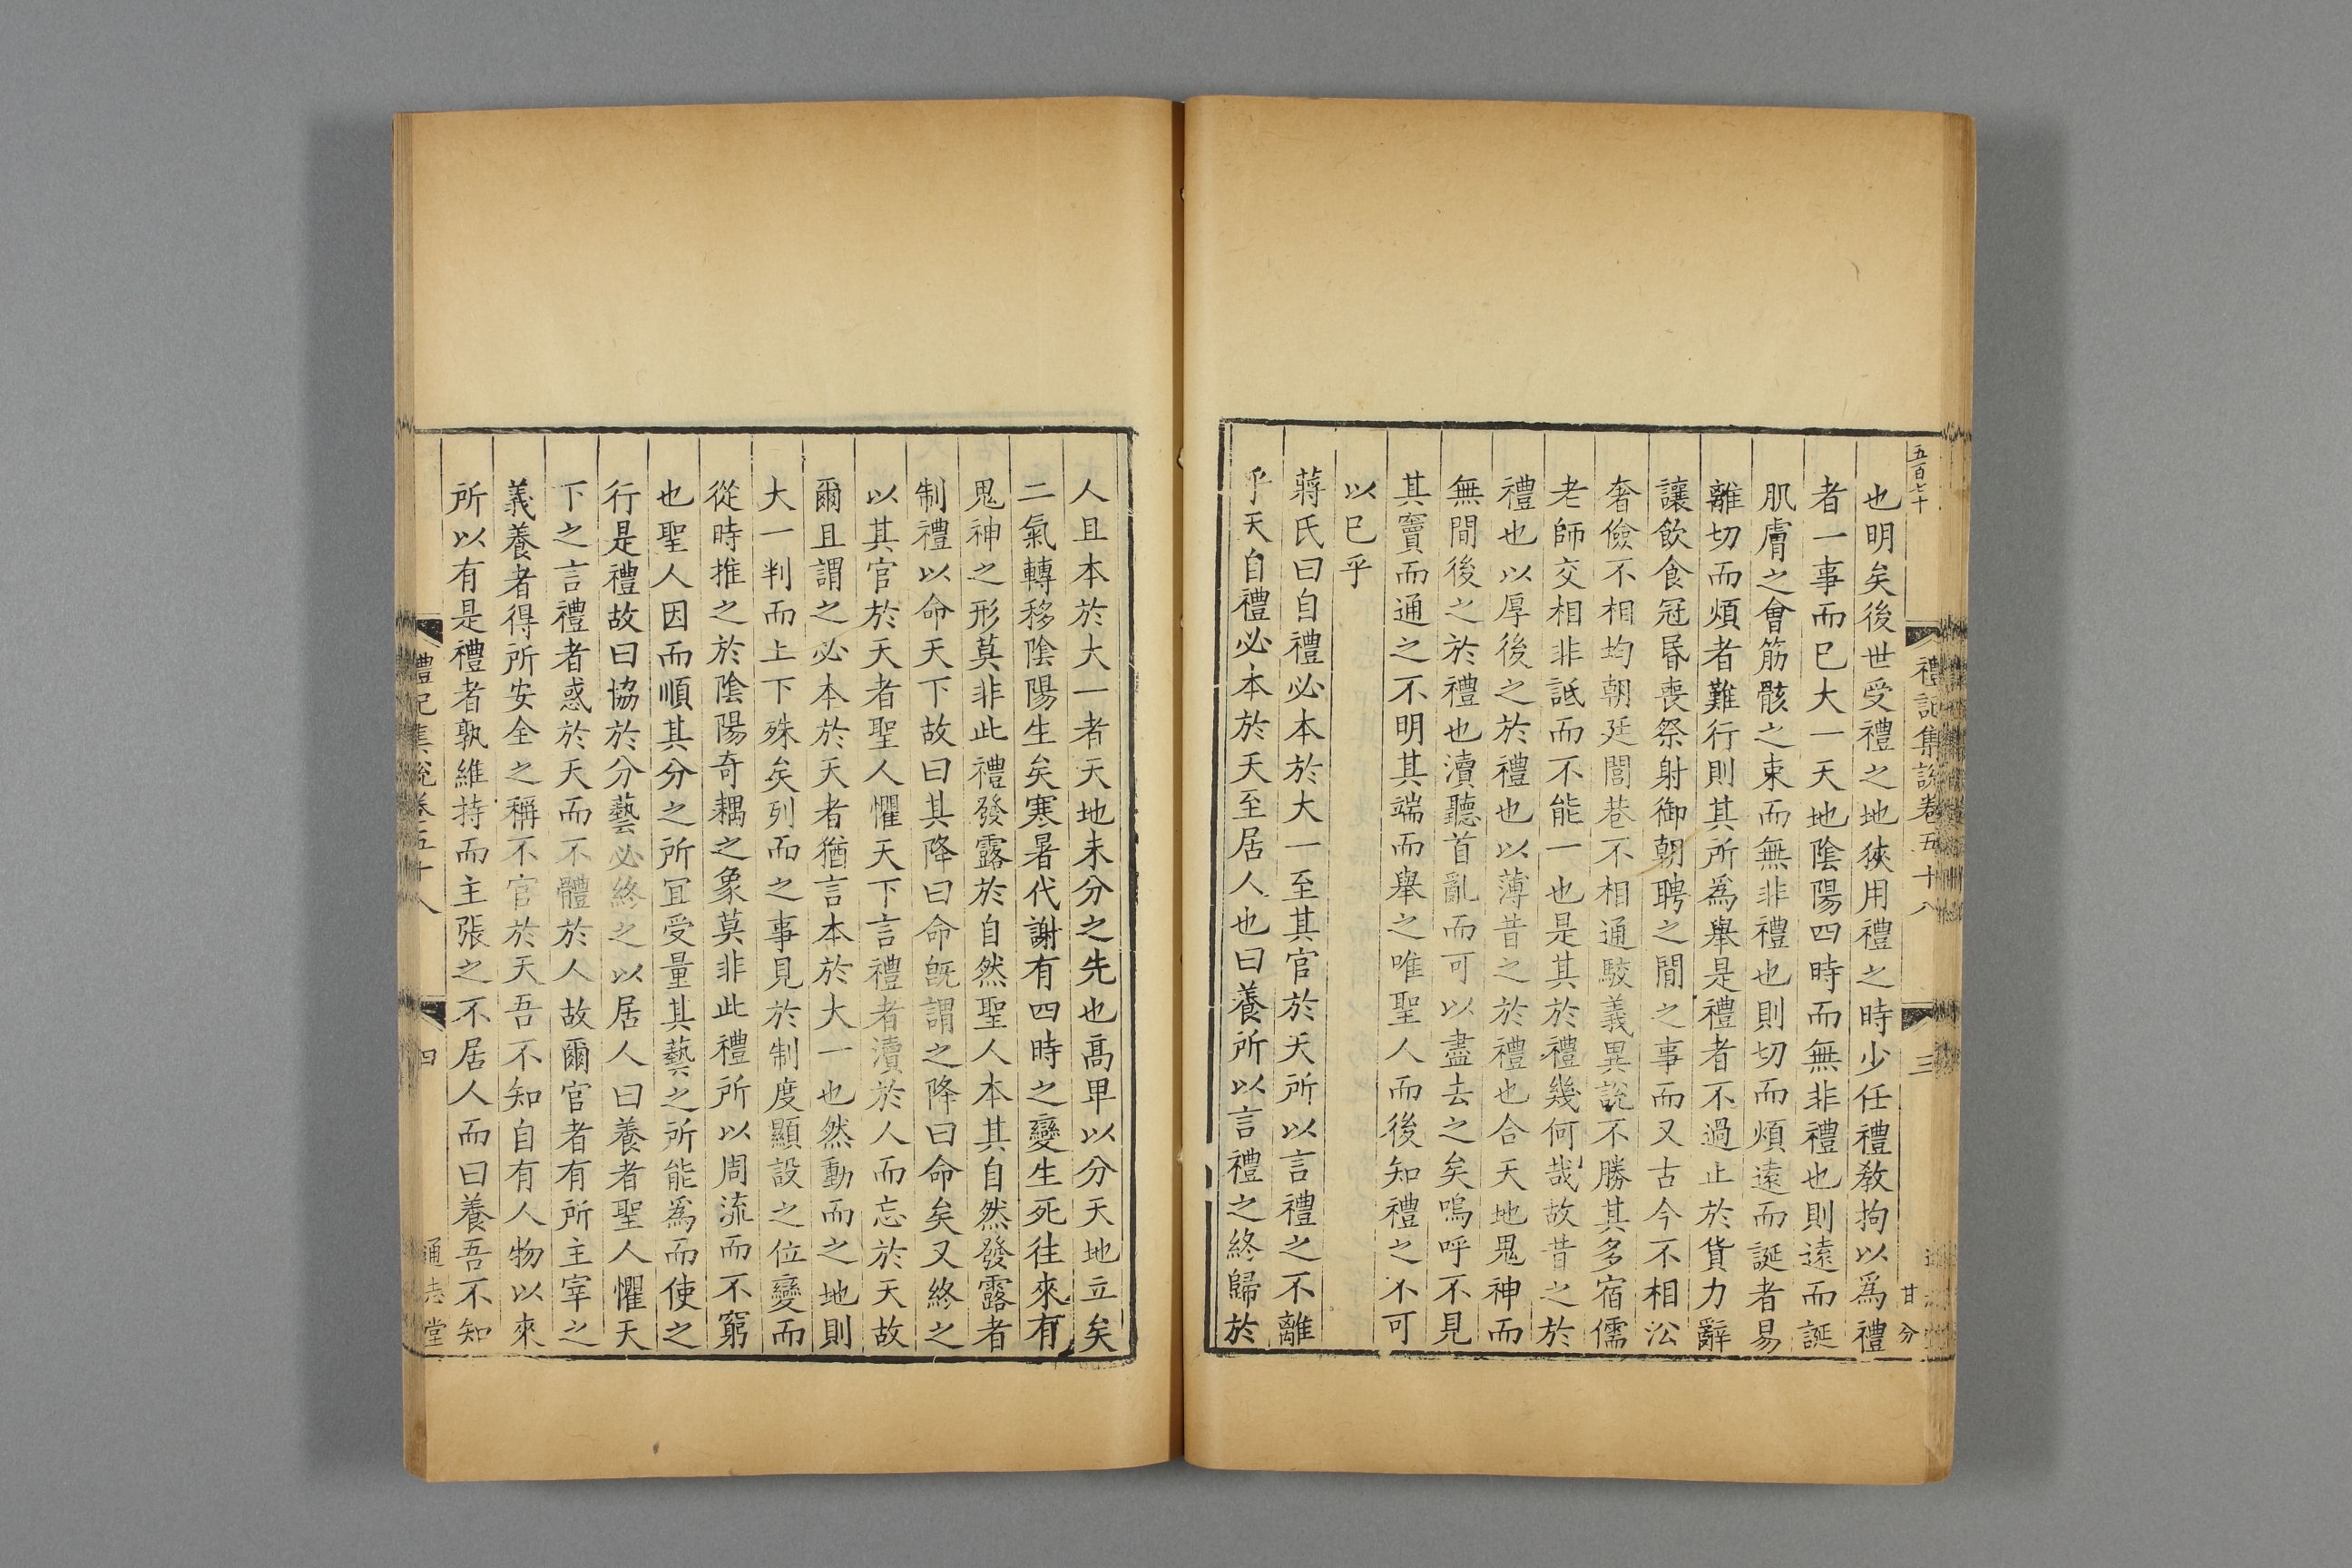 五百七十
禮記集說卷五十八
三
甘分
也明矣後世受禮之地狹用禮之時少任禮教拘以爲禮
者一事而已大一天地陰陽四時而無非禮也則遠而誕
肌膚之會筋骸之束而無非禮也則切而煩遠而誕者易
離切而煩者難行則其所爲舉是禮者不過止於貨力辭
讓飲食冠昬喪祭射御朝聘之閒之事而又古今不相㳂
奢儉不相均朝廷閭巷不相通駮義異說不勝其多宿儒
老師交相非詆而不能一也是其於禮幾何哉故昔之於
禮也以厚後之於禮也以薄昔之於禮也合天地鬼神而
無間後之於禮也瀆聽首亂而可以盡去之矣嗚呼不見
其竇而通之不明其端而舉之唯聖人而後知禮之不可
以已乎
蔣氏曰自禮必本於大一至其官於天所以言禮之不離
乎天自禮必本於天至居人也曰養所以言禮之終歸於
人且本於大一者天地未分之先也高卑以分天地立矣
二氣轉移陰陽生矣寒暑代謝有四時之變生死往來有
鬼神之形莫非此禮發露於自然聖人本其自然發露者
制禮以命天下故曰其降曰命旣謂之降曰命矣又終之
以其官於天者聖人懼天下言禮者瀆於人而忘於天故
爾且謂之必本於天者猶言本於大一也然動而之地則
大一判而上下殊矣列而之事見於制度顯設之位變而
從時推之於陰陽奇耦之象莫非此禮所以周流而不窮
也聖人因而順其分之所宜受量其藝之所能爲而使之
行是禮故曰協於分藝必終之以居人曰養者聖人懼天
下之言禮者惑於天而不體於人故爾官者有所主宰之
義養者得所安全之稱不官於天吾不知自有人物以來
所以有是禮者孰維持而主張之不居人而曰養吾不知
禮記集說卷五十八
四
通志堂